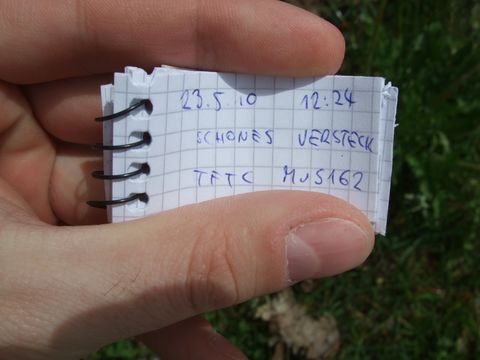 23.5.10 12:24
SCHÖNES VERSTECK
TFTC MJS162